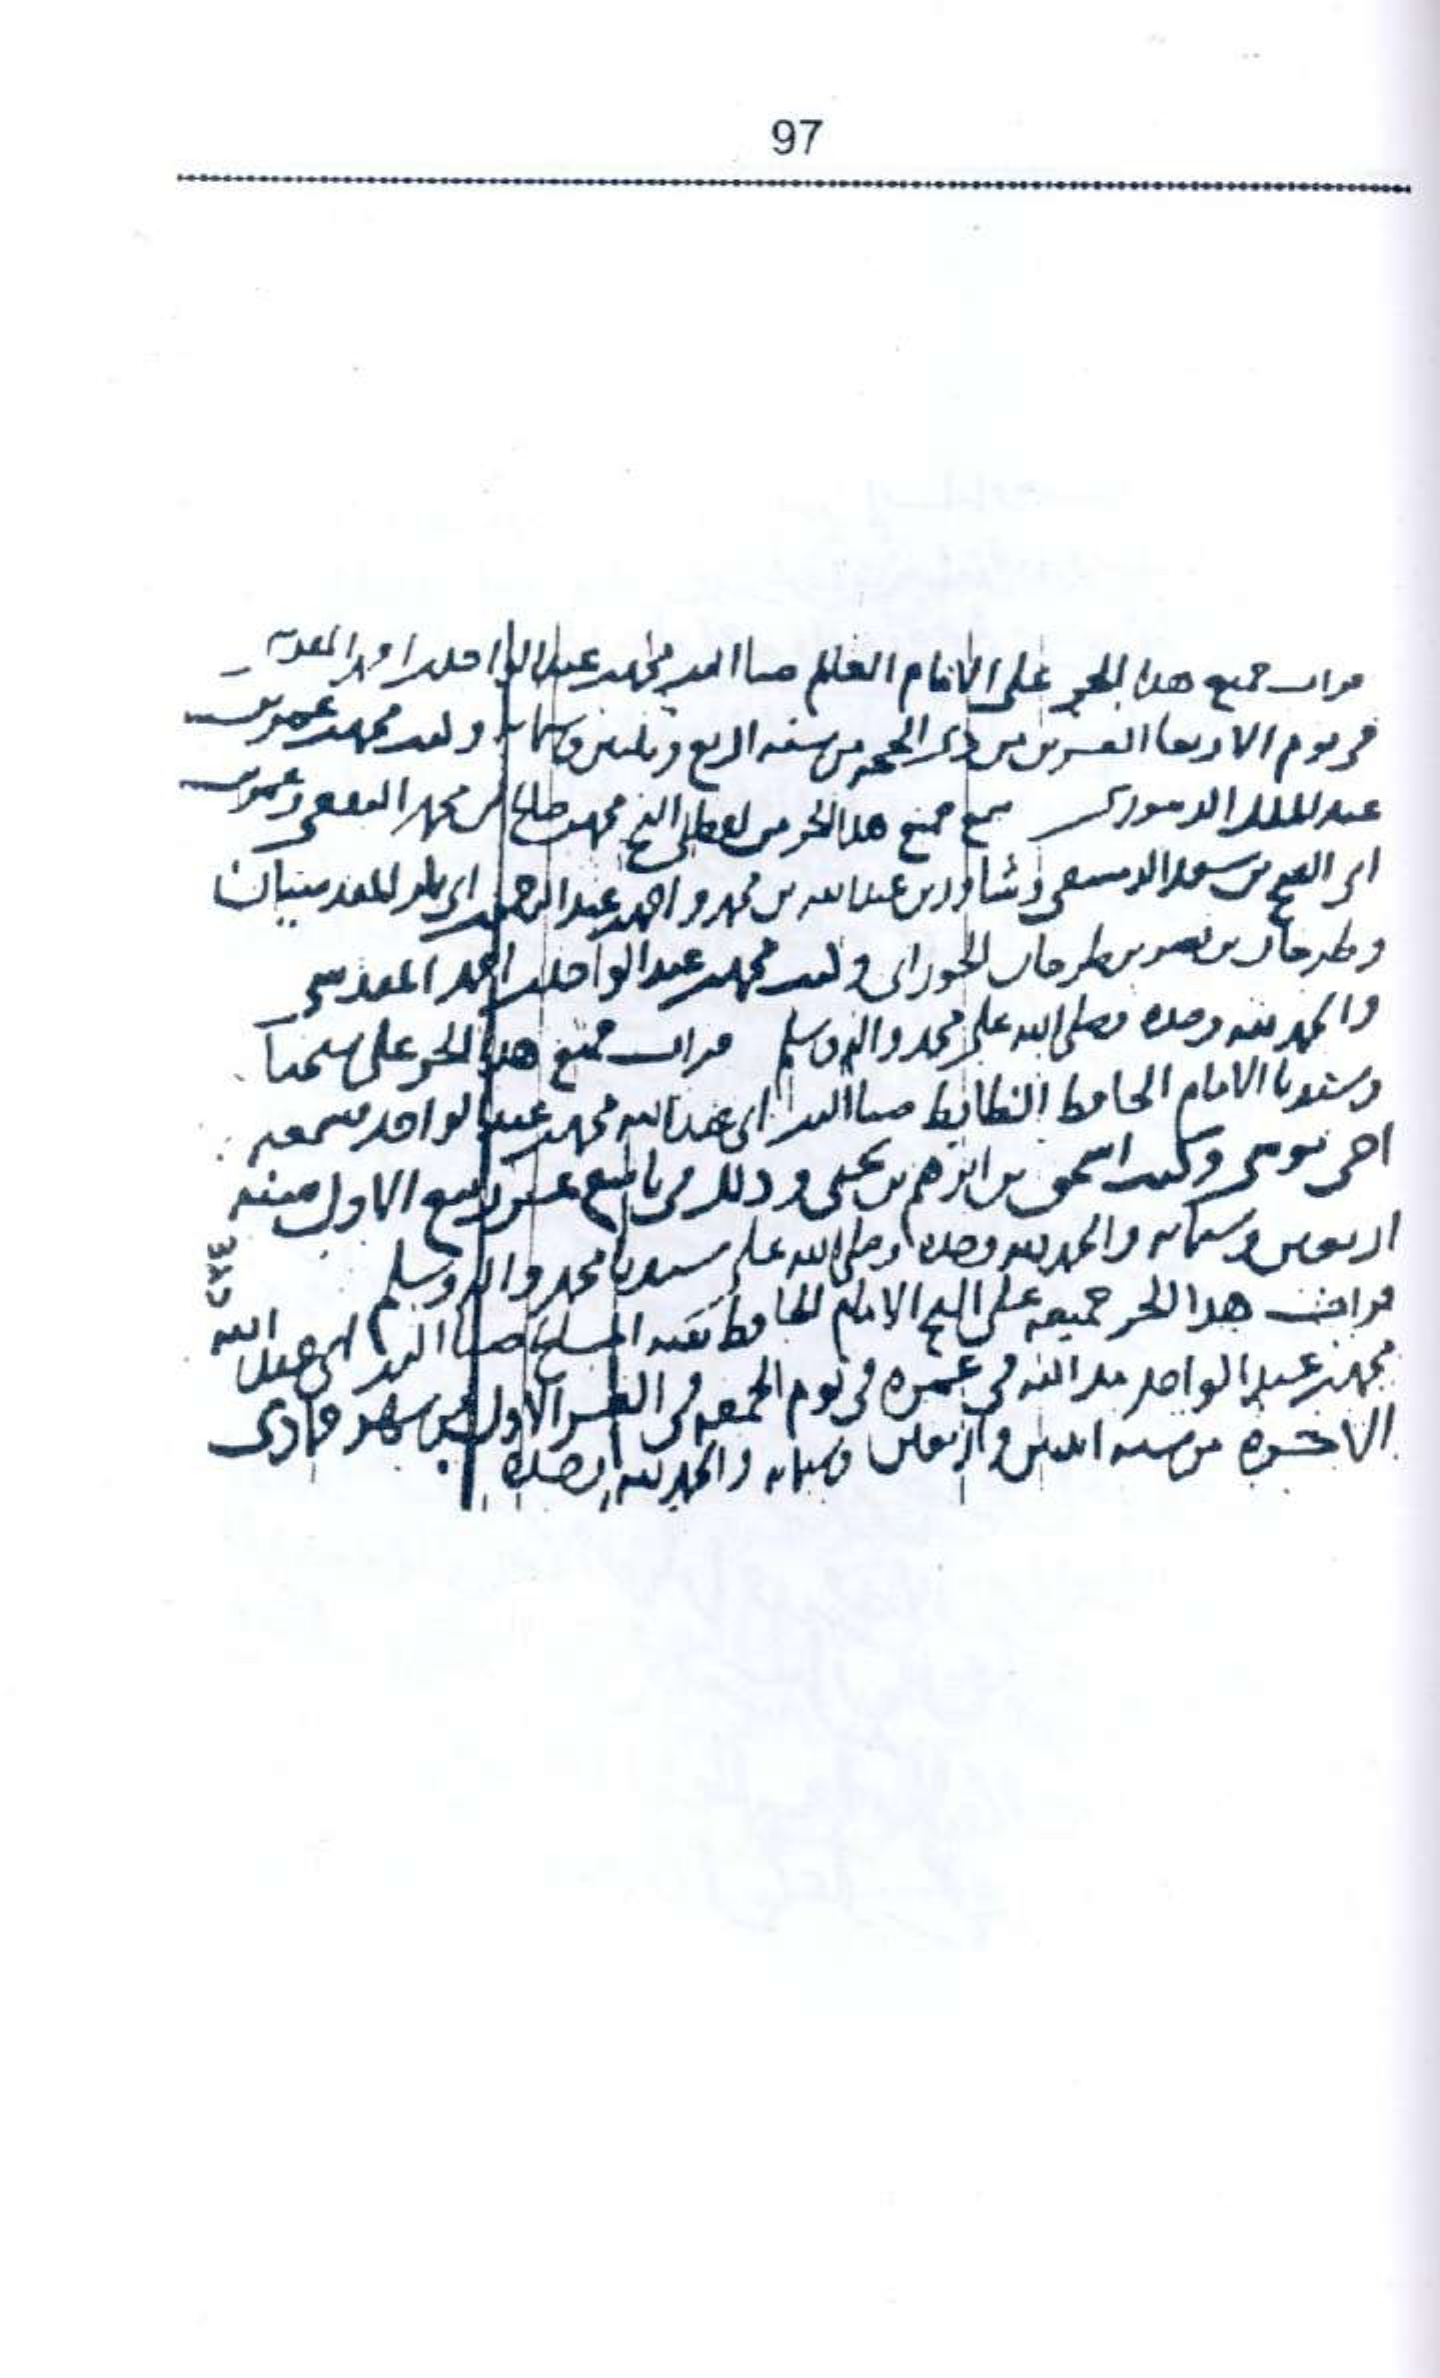 97
قرات جميع هذا الجزء على الامام العالم ضيا الدين محمد بن عبد الواحد بن احمد المقدسي
في يوم الاربعا العشرين من ذي الحجة من سنة اربع وثلثين وستمائة وكتب محمد بن عمر بن
عبد الملك الدينوري سمع جميع هذا الجزء من لفظي الشيخ محمد بن صالح بن محمد وعمر بن
ابي الفتح بن سعد الدمشقي وشاور بن عبد الله بن محمد واحمد بن عبد الرحمن المقدسيان
وطرخان بن نصر بن طرخان الحوراني وكتب محمد بن عبد الواحد بن احمد المقدسي
والحمد لله وحده وصلى الله على محمد واله وسلم قرات جميع هذا الجزء على شيخنا
وسيدنا الامام الحافظ ضيا الدين ابي عبد الله محمد بن عبد الواحد فسمعه
اخي موسى وكتب اسحق بن ابرهيم بن يحيى وذلك في تاسع عشر ربيع الاول سنة
اربعين وستمائة والحمد لله وحده وصلى الله على سيدنا محمد واله وسلم
قرات هذا الجزء جميعه على الشيخ الامام الحافظ بقية المشايخ ضيا الدين ابي عبد الله
محمد بن عبد الواحد مد الله في عمره في يوم الجمعة في العشر الاول من شهر جمادى
الاخرة من سنة اثنين واربعين وستمائة والحمد لله وحده